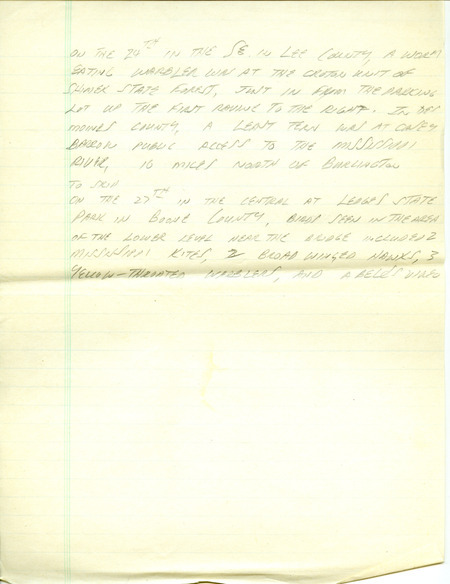 ON THE 24TH IN THE SE IN LEE COUNTY, A WORM
EATING WARBLER WAS AT THE CROTON UNIT OF
SHIMEK STATE FOREST, JUST IN FROM THE PARKING
LOT UP THE FIRST RAVINE TO THE RIGHT. IN DES
MOINES COUNTY, A LEAST TERN WAS AT CASEY
BARROW PUBLIC ACCESS TO THE MISSISSIPPI
RIVER, 10 MILES NORTH OF BURLINGTON
TO
ON THE 27TH IN THE CENTRAL AT LEDGES STATE
PARK IN BOONE COUNTY, BIRDS SEEN IN THE AREA
OF THE LOWER LEVEL NEAR THE BRIDGE INCLUDED 2
MISSISSIPPI KITES, 2 BROAD WINGED HAWKS, 3
YELLOW-THROATED WARBLERS, AND A BELL'S VIREO